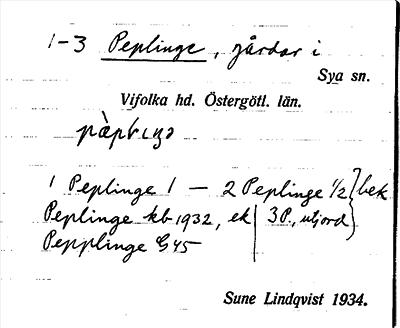 1-3 Peplinge, gårdar i
Sya sn.
Vifolka hd. Östergötl. län.
1 Peplinge 1 — 2 Peplinge 1/2 } bek
Peplinge kb 1932, ek | 3 P., utjord
Pepplinge G 45
Sune Lindqvist 1934.